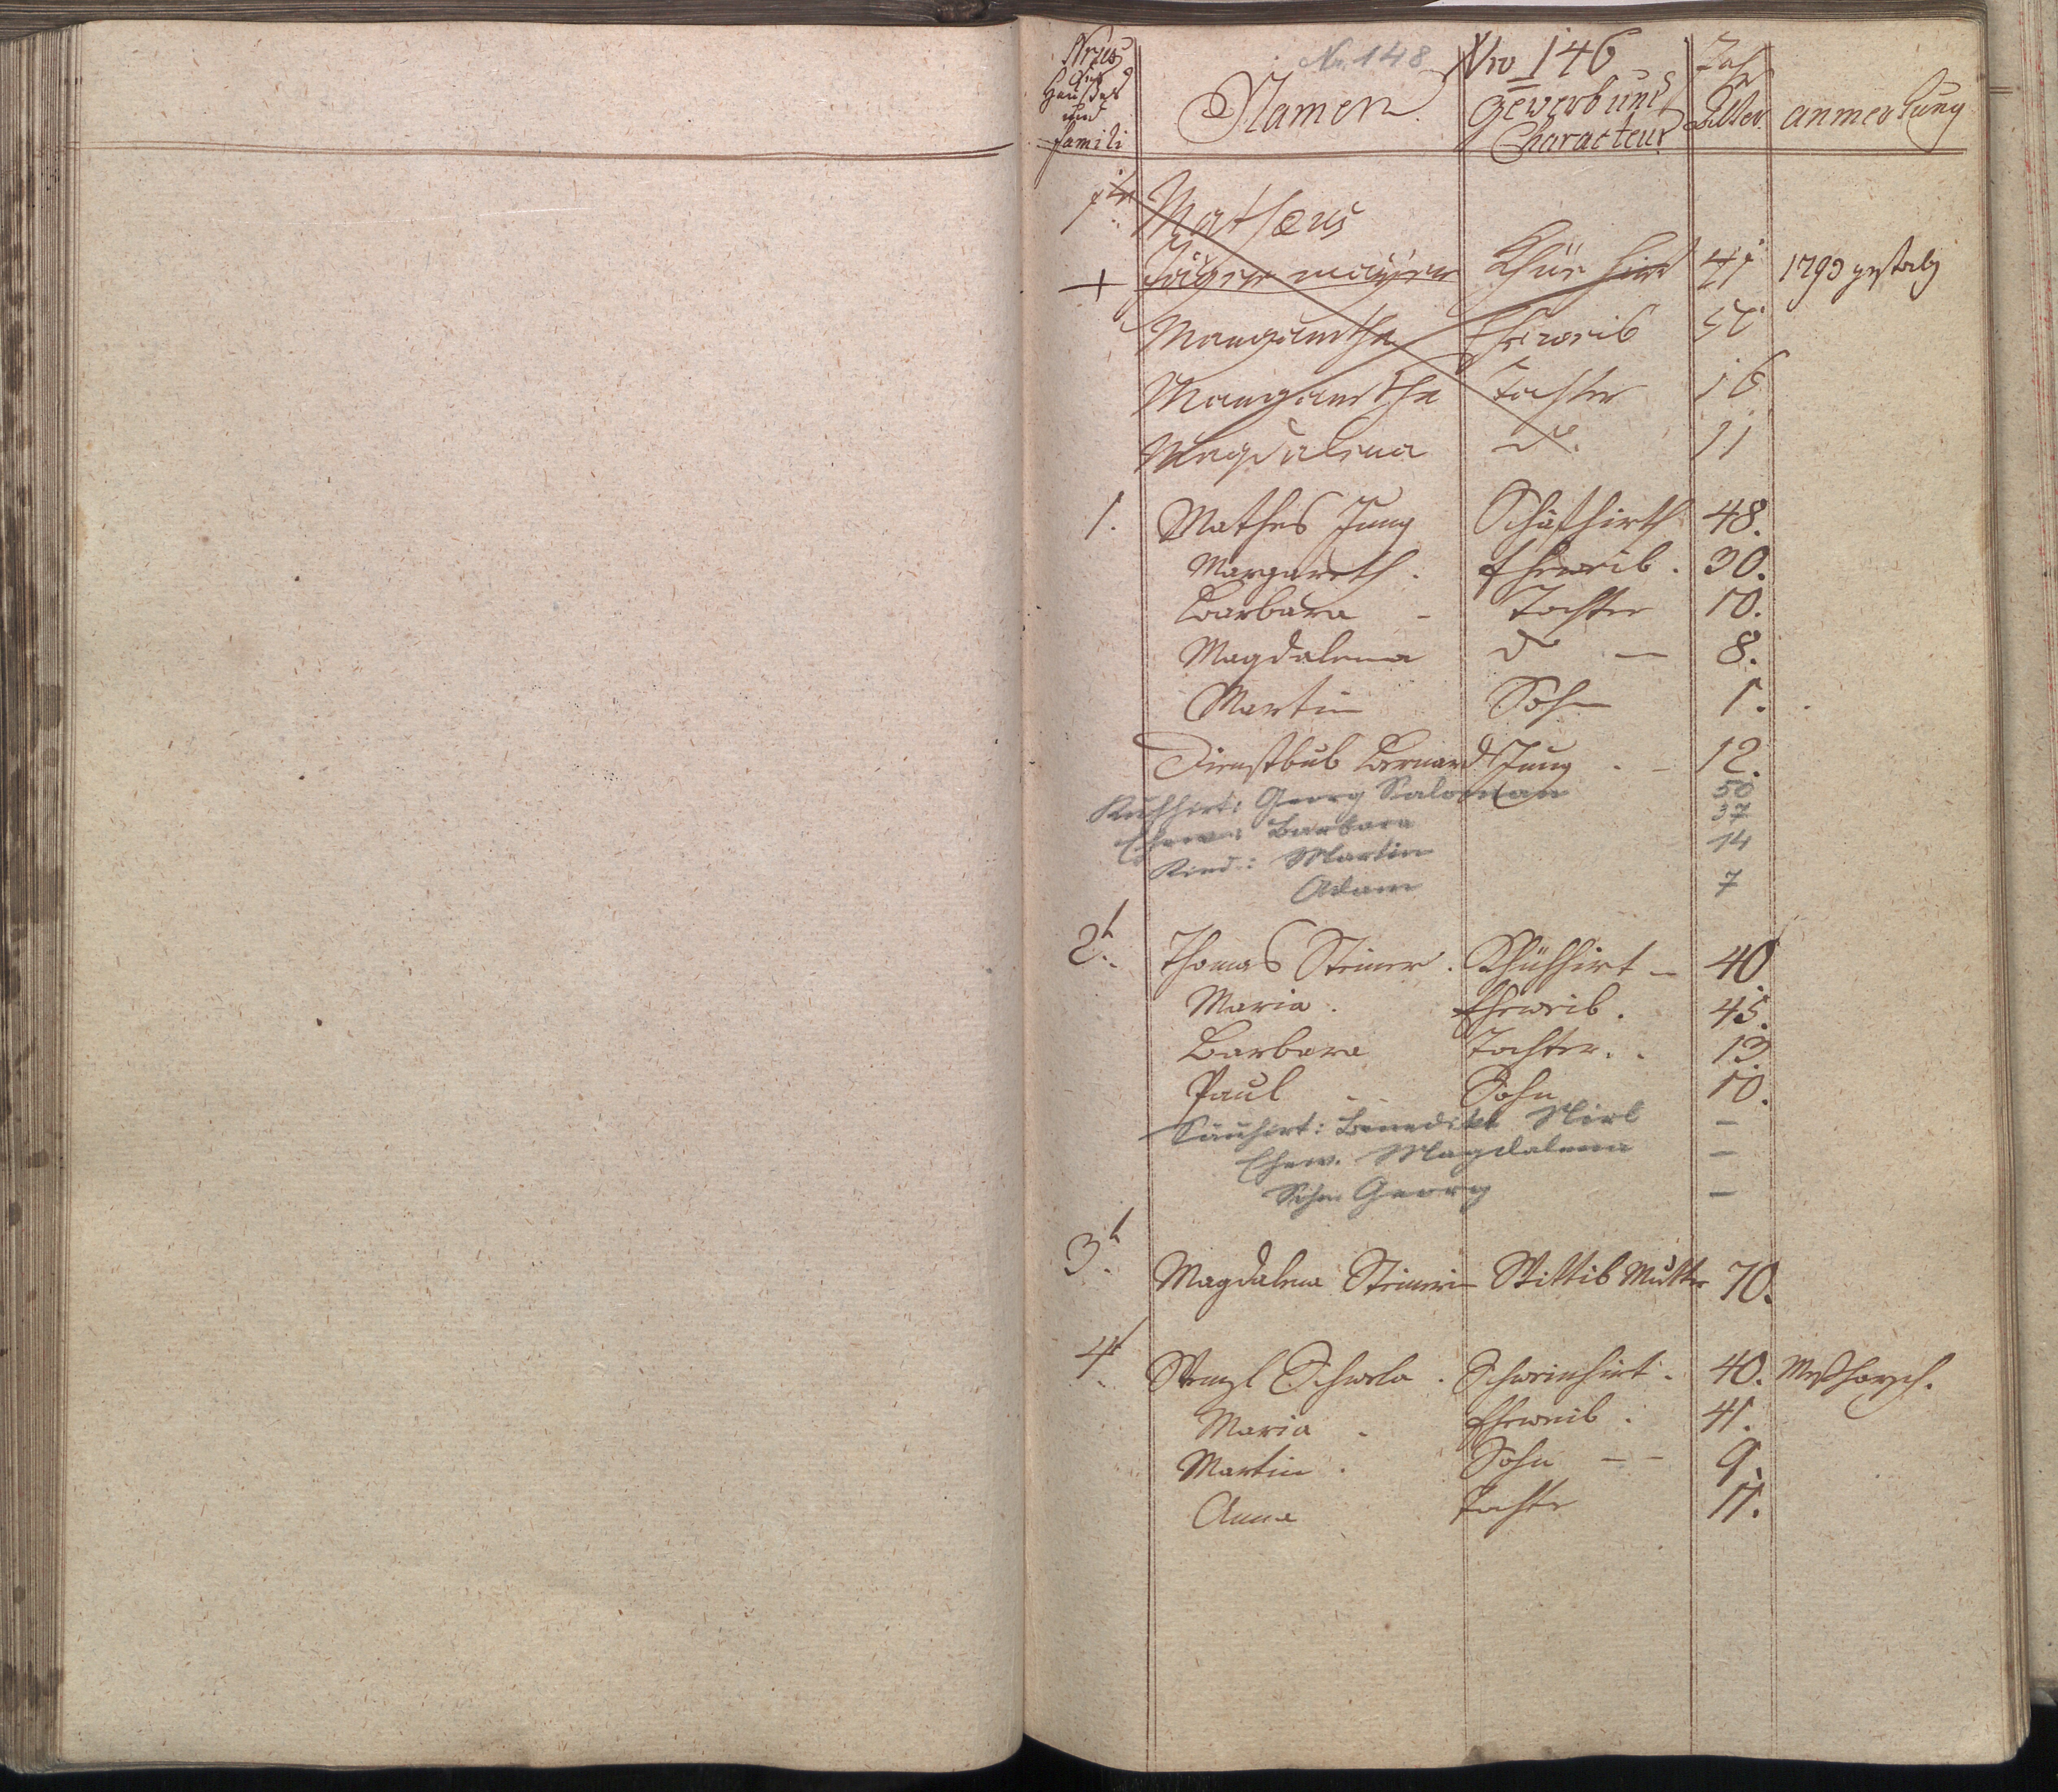 Nr. 148 Nro 146
Nrus des Haußes und Famili Namen. Gewerb und Characteur Jah Alter anmerkung
1te Matheus
+ Kühe hirt 41 1793 gestorb
Margaretha Eheweib 50
Margaretha Tochter 16
Magdalena do. 11
1. Mathes Jung Schafhirth 48.
Margareth. Eheweib. 30.
Barbara - Tochter 10.
Magdalena do — 8.
Martin Sohn 1.
Dienstbub Bernard Jung . - 12.
Kuhhirt: Georg Saloman 50
Ehew: Barbara 37
Kind: Martin 14
Adam 7
2t. Thomas Steiner. Kühhirt — 40
Maria. Eheweib. 45.
Barbara Tochter. . 13
Paul - - Sohn 10.
Sauhirt: Benedikt Nirl —
Ehew. Magdalena —
Sohn Georg —
3t. Magdalena Steinerin Mutter 70.
4t. Wenzl . Schweinhirt. 40.
Maria - Eheweib. 41.
Martin. Sohn — - 9.
Anna Tochter 11.